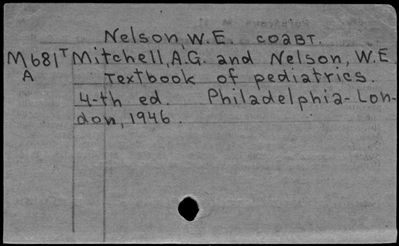 Nelson, W.E. соавт.
M681ᵀ Mitchell, A.G. and Nelson, W.E
A Textbook of pediatrics.
4-th ed. Philadelphia-Lon-
don, 1946.